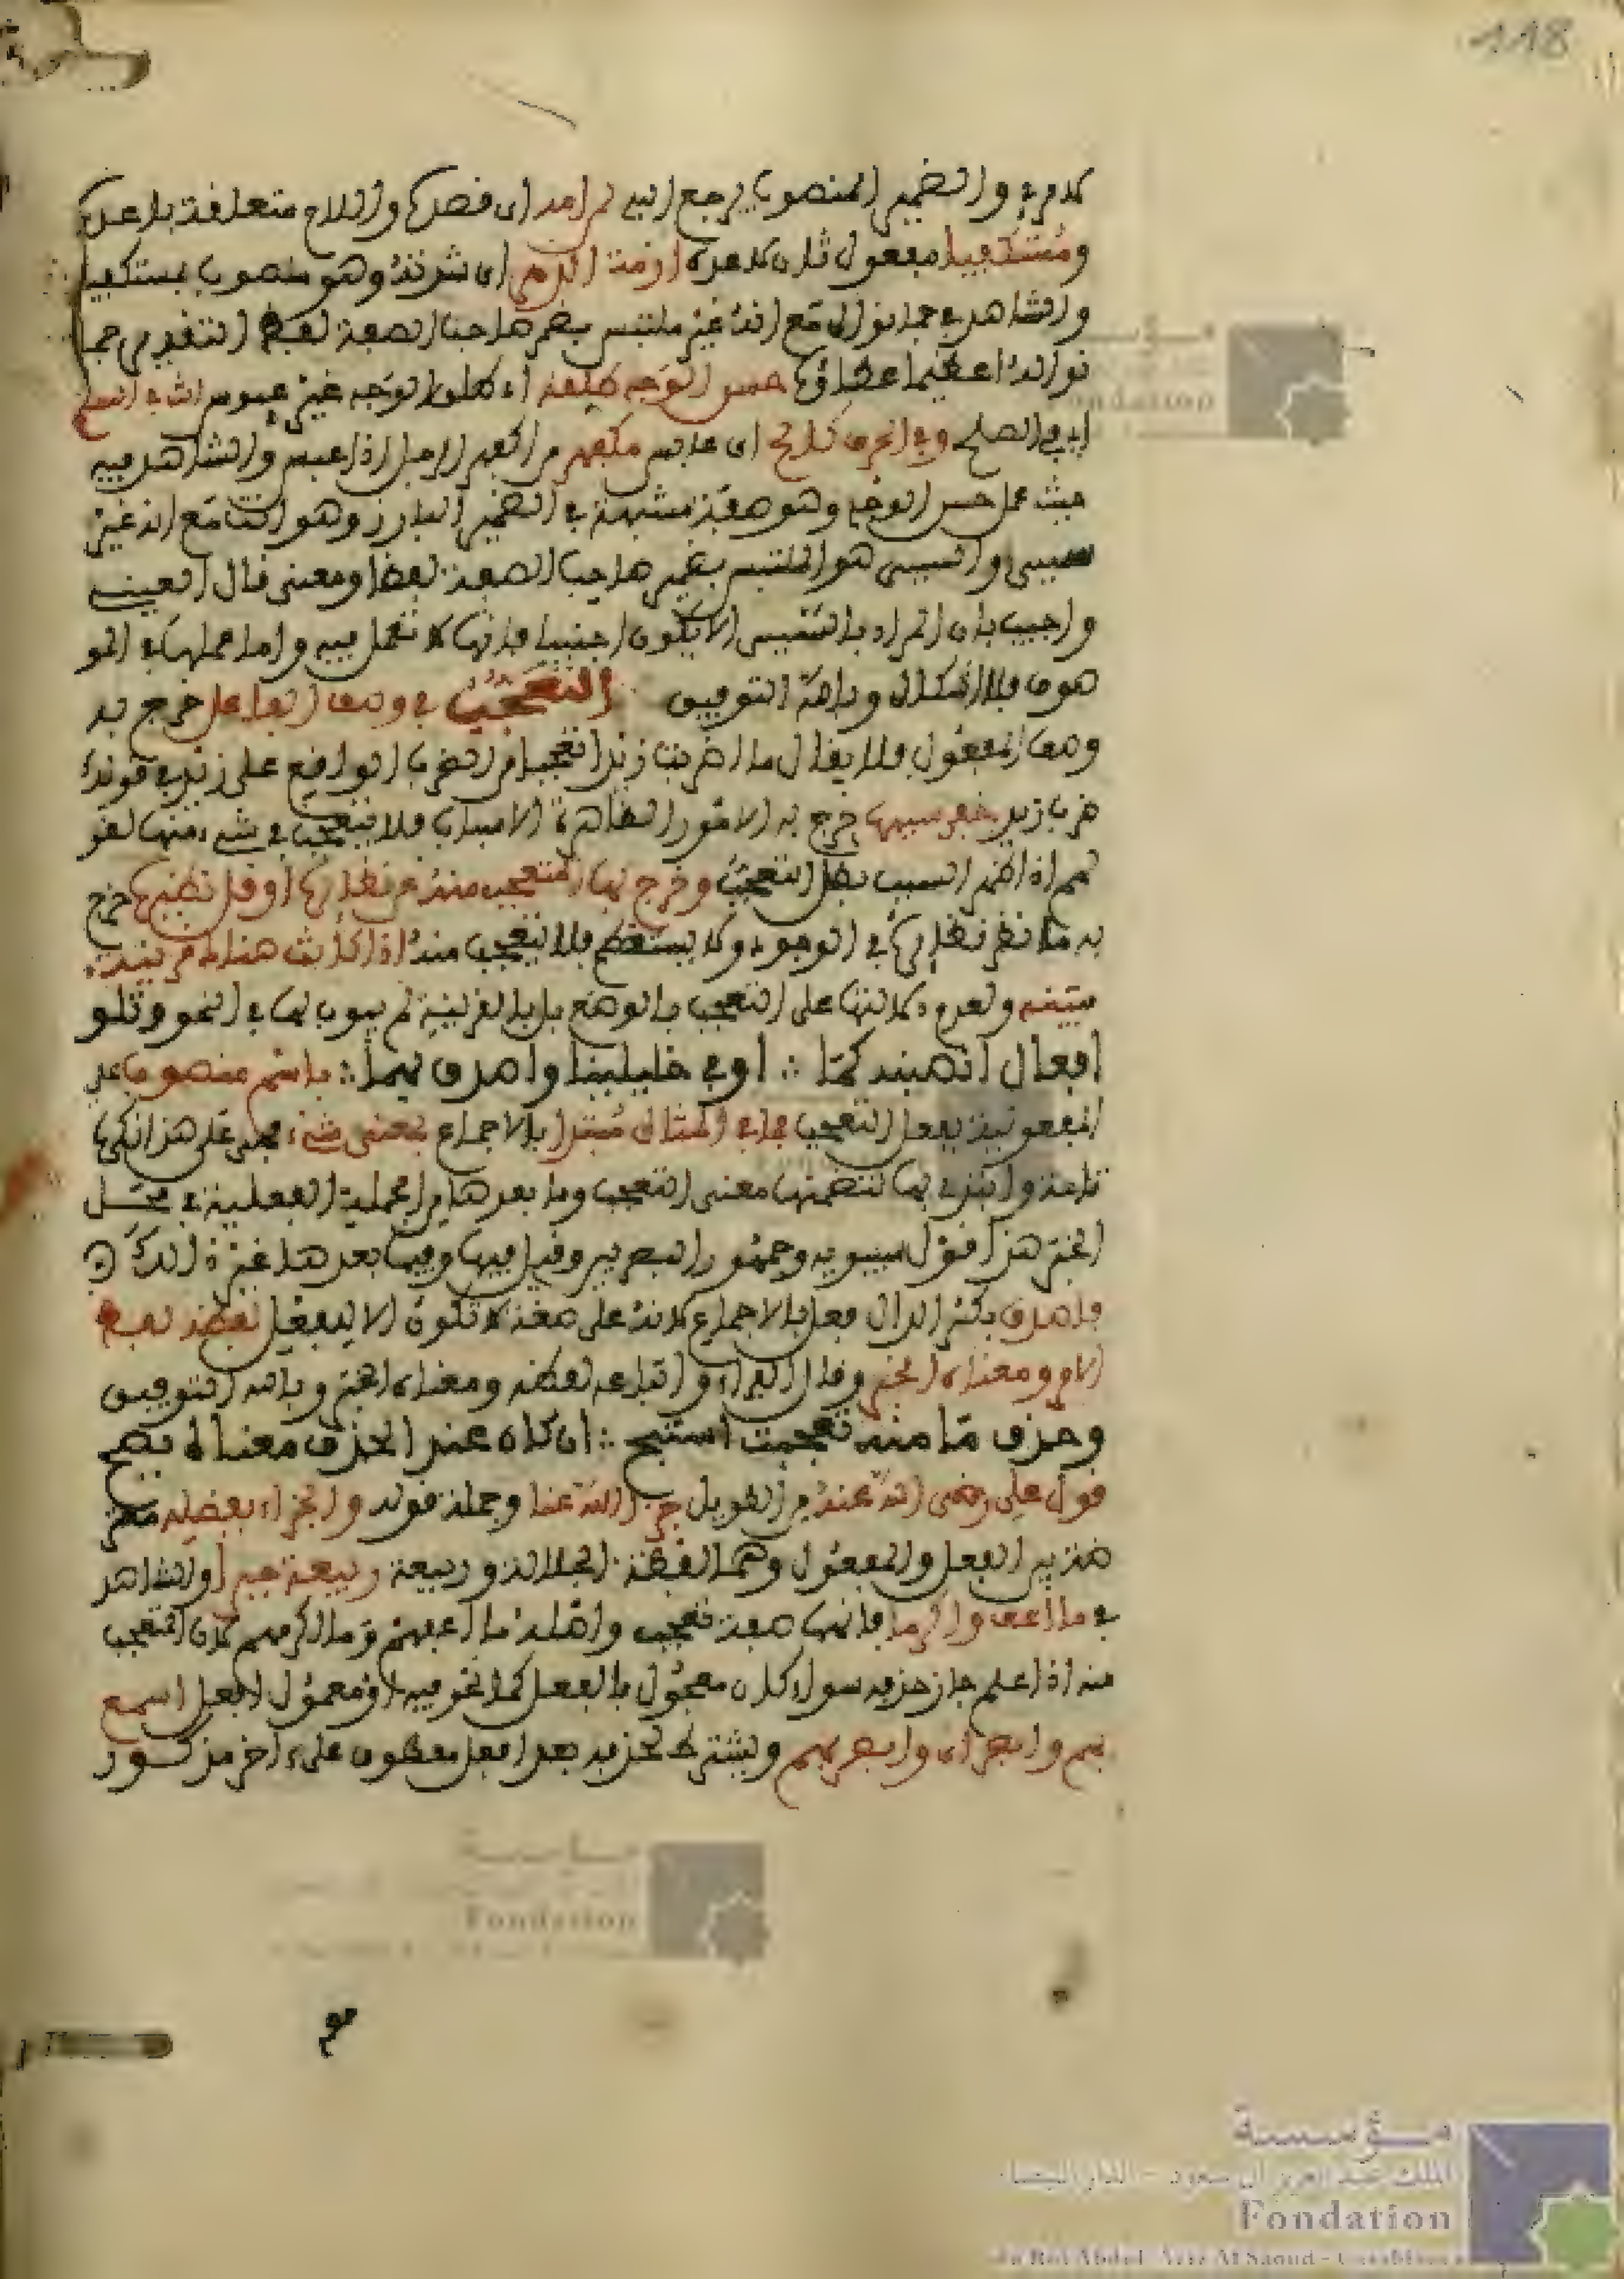 118
لامرئ والضمير المنصوب يرجع اليه لم امد اى فصرك واللام متعلقة بلا عدك
ومستكفيا مفعول ثان لاعدك ازمة الدهر اى شرته وهو منصوب بمستكفيا
والشاهد في حما نواله مع انه غير ملتبس بضمير صاحب الصفة لفظا التقدير حما
نواله اعظيما عطاؤك حسن الوجه طلقه اى طلق الوجه غير عبوس انت في السلم
اى في الصلح وفي الحرب كالح اى عابس مكفهر من اكفهر الرجل اذا عبس والشاهد فيه
حيث عمل حسن الوجه وهو صفة مشبهة في الضمير البارز وهو انت مع انه غير
سببي والسببي هو الملتبس بضمير صاحب الصفة لفظا ومعنى قال العيني
واجيب بان المراد بالسببي الا يكون اجنبيا فانها لا تعمل فيه واما عملها في المو
صوف فلا اشكال وبالله التوفيق التعجب في وصف الفاعل خرج به
وصف المفعول فلا يقال ما اضرب زيدا تعجبا من الضرب الواقع على زيد في قولك
ضرب زيد خفي سببها خرج به الامور الظاهرة الاسباب فلا يتعجب في شيء منها لقو
لهم اذا ظهر السبب بطل التعجب وخرج بها المتعجب منه عن نظائره او قل نظيره خرج
به ما تظهر نظائره في الوجود ولا يستعظم فلا يتعجب منه اذا كانت هناك قرينة
مبينة ولعدم دلالتها على التعجب بالوضع بل بالقرينة لم يبوب لها في النحو وتلو
افعل انصبنه كما ∴ اوفى خليلينا واصدق بهما ∴ باسم منصوب على
المفعولية بفعل التعجب فما في المثال مبتدا بالاجماع بمعنى شيء فهي على هذا نكرة
تامة وابتدئ بها لتضمنها معنى التعجب وما بعدها من الجملة الفعلية في محل
الخبر هذا قول سيبويه وجمهور البصريين وقيل فيها وفيما بعدها غير ذلك
فاصدق بكسر الدال فعل بالاجماع لانه على صيغة لا تكون الا لفعل لفظه لفظ
الامر ومعناه الخبر وقال الفراء واتباعه لفظه ومعناه الامر وبالله التوفيق
وحذف ما منه تعجبت استبح ∴ ان كان عند الحذف معناه يضح
قول علي رضي الله عنه من الطويل جزى الله عنا وجملة قوله والجزاء بفضله معتر
ضة بين الفعل والمفعول وهما لفظة الجلالة وربيعة ربيعة خيرا والشاهد
في ما اعف واكرما فانها صيغة تعجب واصله ما اعفهم وما اكرمهم لان المتعجب
منه اذا علم جاز حذفه سواء كان معمول ما الفعل كما نحو فيه او معمول افعل اسمع
بهم وابصر اى وابصر بهم ويشترط لحذفه بعد افعل معطوف على اخر مذكور
مؤسسة
الملك عبد العزيز آل سعود - الدار البيضاء
Fondation
du Roi Abdul-Aziz Al Saoud - Casablanca